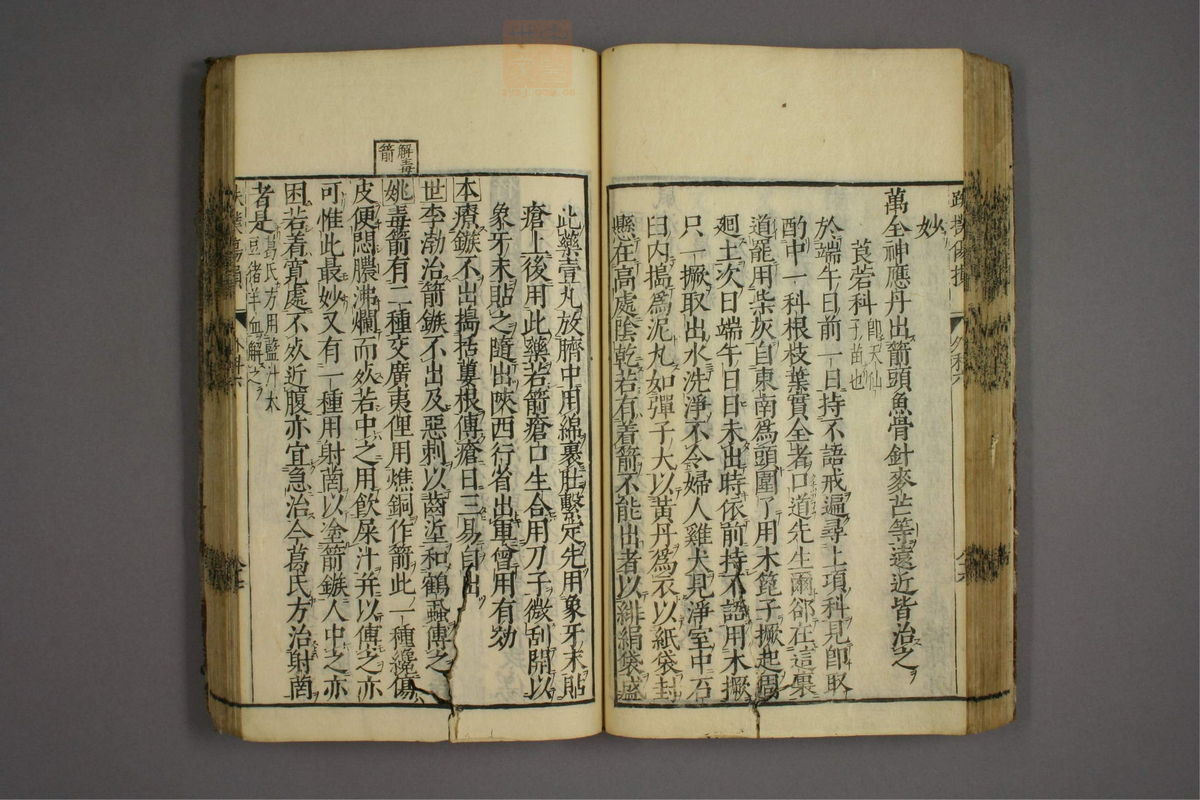 萬全神應丹出箭頭魚骨針麥芒等遠近皆治之
妙
莨菪科即天仙子苗也
於端午日前一日持不語戒遍尋上項科見卽取
酌中一科根枝葉實全者口道先生爾卻在這裏
道罷用柴灰自東南爲頭圍了用木篦子撅起周
廻土次日端午日日未出時依前持不語用木撅
只一撅取出水洗淨不令婦人雞犬見淨室中石
臼内搗爲泥丸如彈子大以黄丹爲衣以紙袋封
懸在高處陰乾若有着箭不能出者以緋絹袋盛
此藥壹丸放臍中用綿裹肚繫定先用象牙末貼
瘡上後用此藥若箭瘡口生合用刀子微刮開以
象牙末貼之隨出陝西行省出軍曾用有効
本療鏃不出搗括蔞根傅瘡日三易自出
世李渤治箭鏃不出及惡刺以齒垽和鶴蝨傅之
解毒箭
姚毒箭有二種交廣夷俚用燋銅作箭此一種纔傷
皮便悶膿沸爛而死若中之用飲屎汁并以傅之亦
可惟此最妙又有一種用射菵以塗箭鏃人中之亦
困若着寛處不死近腹亦宜急治今葛氏方治射菵
者是葛氏方用藍汁大豆猪羊血解之